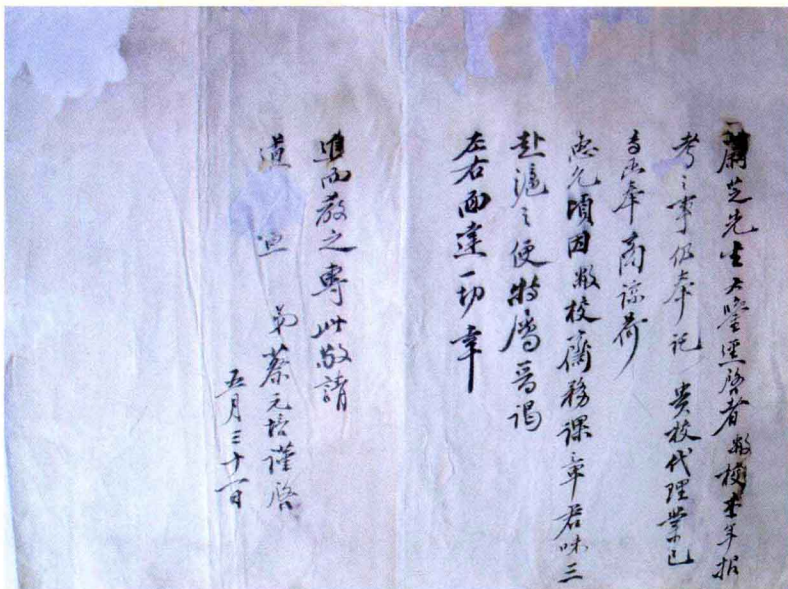 蔚芝先生大鑒逕啓者敝校本年招
考之事仍奉託 貴校代理業已
專函奉商諒荷
惠允頃因敝校齋務課章君味三
赴滬之便特属晋谒
左右面達一切幸
進而教之專此敬請
道 弟蔡元培谨啓
五月三十一日